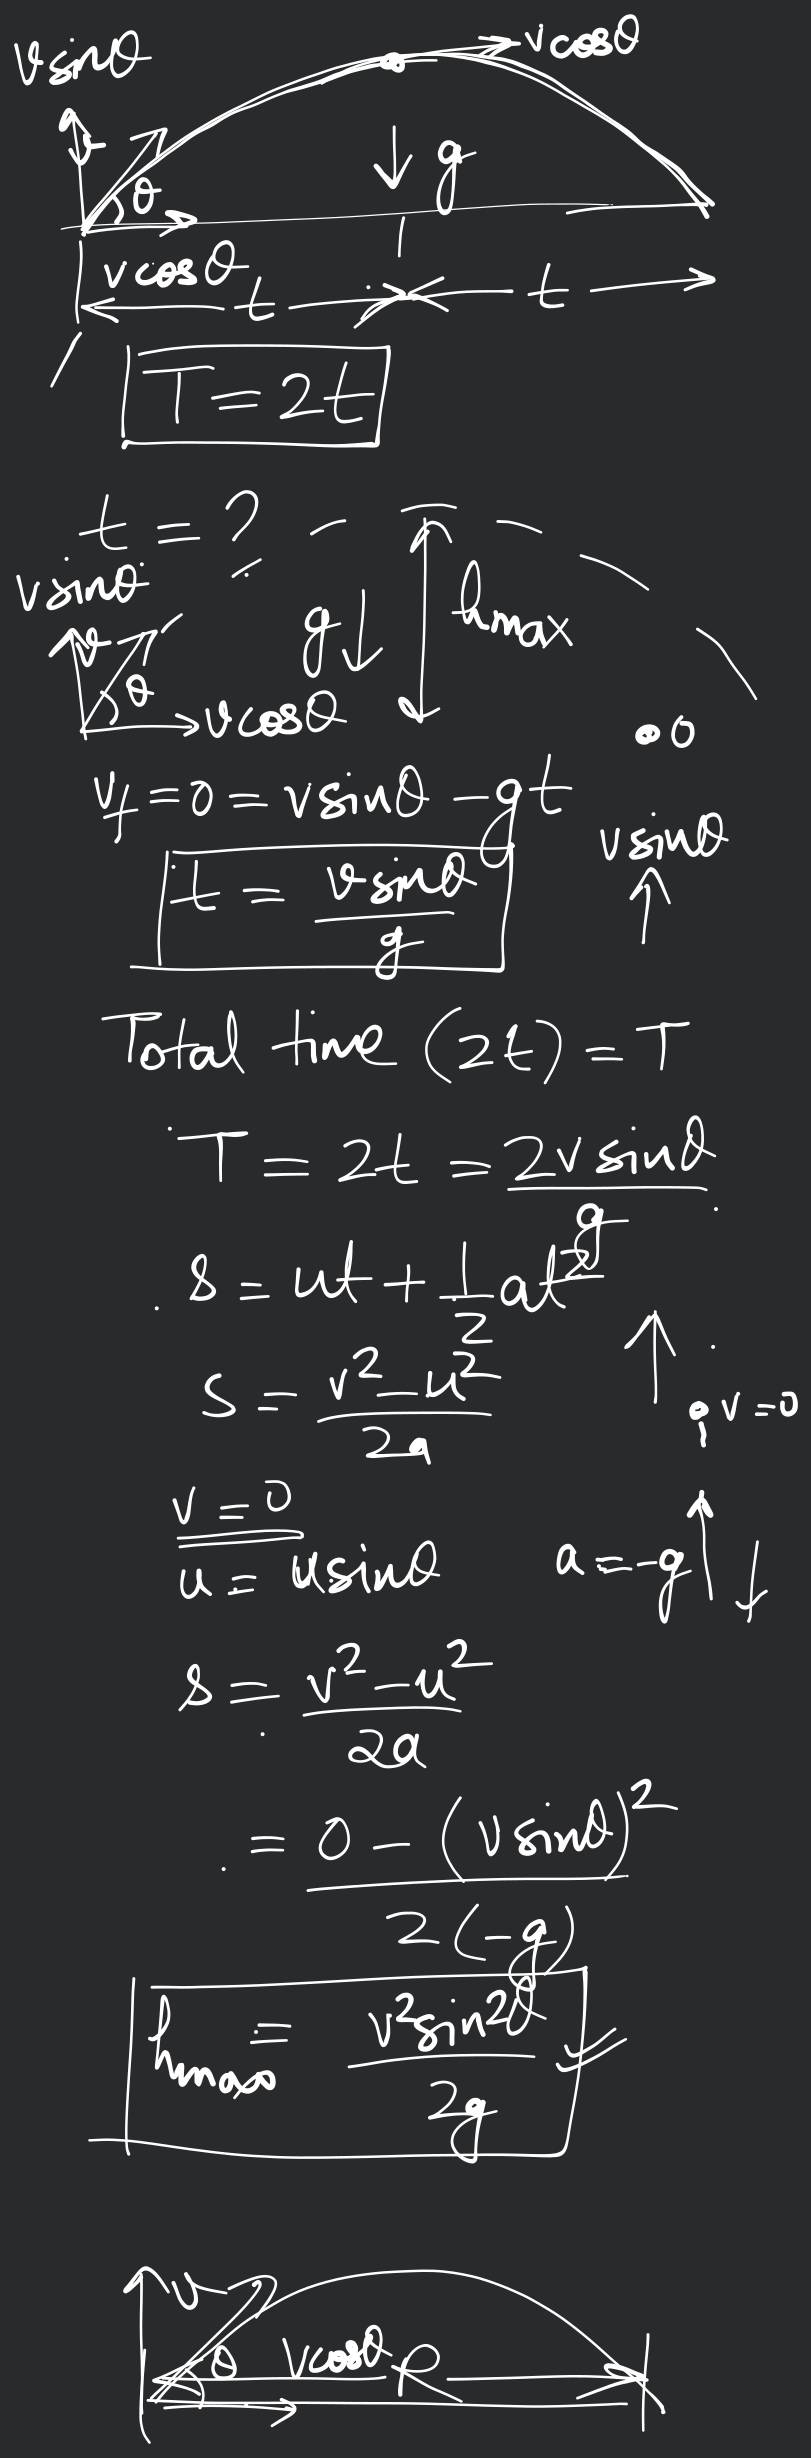 vsinθ
vcosθ
v
θ
↓ g
vcosθ
t
t
T = 2t
t = ?
vsinθ
v
θ
g↓
hmax
vcosθ
0
vf = 0 = vsinθ - gt
vsinθ
t = vsinθ/g
Total time (2t) = T
T = 2t = 2vsinθ/g
s = ut + 1/2 at²
s = v²-u²/2a
v = 0
v = 0
u = usinθ
a = -g
s = v²-u²/2a
= 0 - (vsinθ)²/2(-g)
hmax = v²sin²θ/2g
v
θ
vcosθ
R